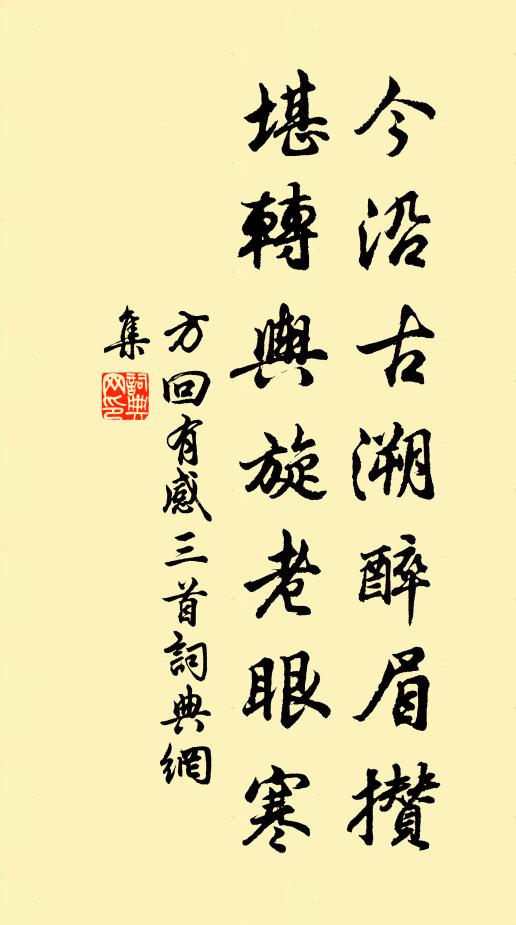 今沿古溯醉眉攢
堪轉輿旋老眼寒
方回有感三首詞典網
集
詞典
网印